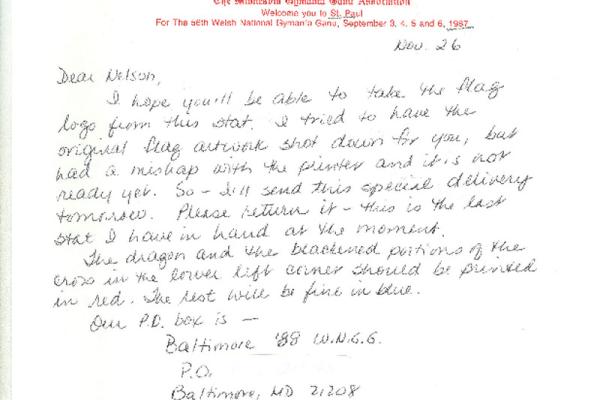 The Minnesota Gymanfa Ganu Association
Welcome you to St. Paul
For The 56th Welsh National Gymanfa Ganu, September 3, 4, 5 and 6, 1987
Nov. 26
Dear Nelson,
I hope you'll be able to take the flag
logo from this stat. I tried to have the
original flag artwork shot down for you, but
had a mishap with the printer and it's not
ready yet. So - I'll send this special delivery
tomorrow. Please return it - this is the last
stat I have in hand at the moment.
The dragon and the blackened portions of the
cross in the lower left corner should be printed
in red. The rest will be fine in blue.
Our P.O. box is —
Baltimore '88 W.N.G.G.
P.O.
Baltimore, MD 21208